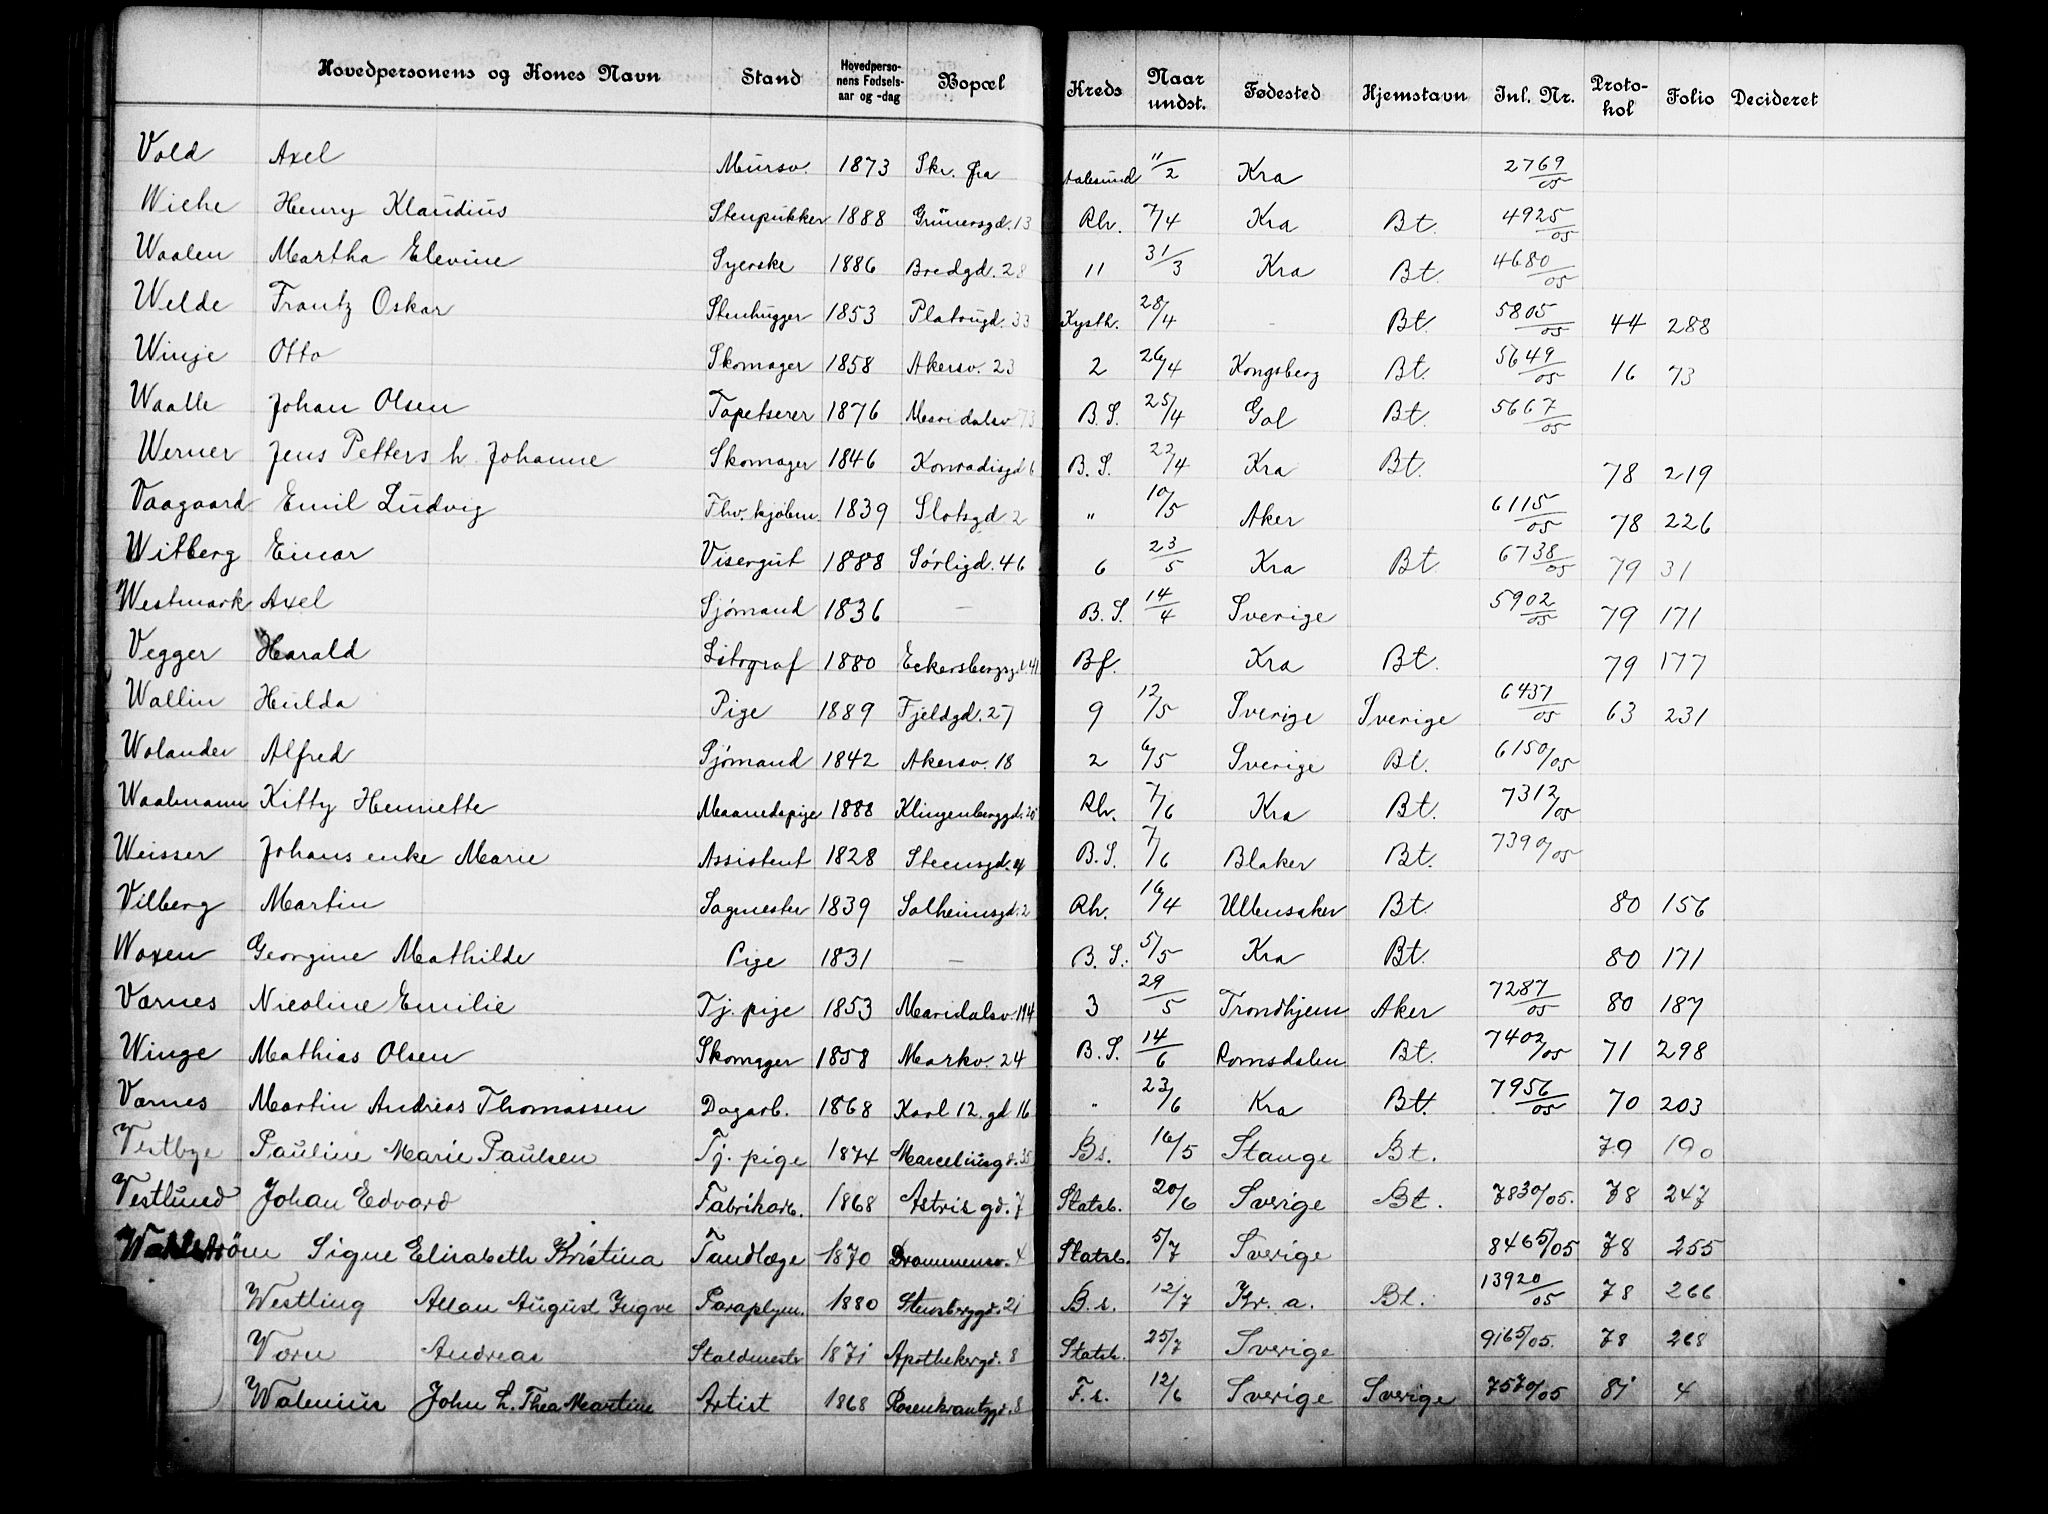 Hovedpersonens og Kones Navn Stand Hovedperso-nens Fødsels-aar og -dag Bopæl Kreds Naar undst. Fødested Hjemstavn Inl. Nr. Proto-kol Folio Decideret
Vold Axel Mursv. 1873 Skr. fra Aalesund 11/2 Kra 2769/05
Wiche Henry Klaudius Stenpukker 1888 Grünersgd. 13 Rh. 7/4 Kra Bt. 4925/05
Waalen Martha Elevine Syerske 1886 Bredgd. 28 11 31/3 Kra Bt. 4680/05
Welde Frantz Oskar Stenhugger 1853 Platougd. 33 Kysth. 28/4 - Bt. 5805/05 44 288
Winje Otto Skomager 1858 Akersv. 23 2 26/4 Kongsberg Bt. 5649/05 16 73
Waalle Johan Olsen Tapetserer 1876 Maridalsv. 73 B. S. 25/4 Gol Bt. 5667/05
Werner Jens Petters h. Johanne Skomager 1846 Konradisgd 6 B. S. 22/4 Kra Bt. 78 219
Vaagaard Emil Ludvig Fhv. kjøbm. 1839 Slotsgd. 2 " 10/5 Aker 6115/05 78 226
Witberg Einar Visergut 1888 Sørligd. 46 6 23/5 Kra Bt. 6738/05 79 31
Westmark Axel Sjømand 1836 - B. S. 14/4 Sverige 5902/05 79 171
Vegger Harald Litograf 1880 Eckersbergsgd. 41 Bf. Kra Bt. 79 177
Wallin Hulda Pige 1889 Fjeldgd. 27 9 12/5 Sverige Sverige 6437/05 63 231
Wolander Alfred Sjømand 1842 Akersv. 18 2 6/5 Sverige Bt. 6150/05
Waalmann Kitty Henriette Maanedspige 1888 Klingenberggd. 20 Rh. 7/6 Kra Bt. 7312/05
Weisser Johans enke Marie Assistent 1828 Steensgd. 4 B. S. 7/6 Blaker Bt. 7390/05
Vilberg Martin Sagmester 1839 Solheimsgd. 2 Rh. 16/4 Ullensaker Bt. 80 156
Woxen Georgine Mathilde Pige 1831 - B. S. 5/5 Kra Bt. 80 171
Værnes Nicoline Emilie Tj. pige 1853 Maridalsv. 194 3 29/5 Trondhjem Aker 7287/05 80 187
Winge Mathias Olsen Skomager 1858 Markv. 24 B. S. 14/6 Romsdalen Bt. 7402/05 71 298
Værnes Martin Andreas Thomassen Dagarb. 1868 Karl 12. gd 16 " 23/6 Kra Bt. 7956/05 70 203
Vestbye Pauline Marie Paulsen Tj. pige 1874 Marceliusgd. 35 Bs. 16/5 Stange Bt. 79 190
Vestlund Johan Edvard Fabrikarb. 1868 Astris gd. 7 Statsb. 20/6 Sverige Bt. 7830/05. 78 247
Wahlstrøm Signe Elisabeth Kristina Tandlæge 1870 Drammensv. 4 Statsb. 5/7 Sverige 8465/05 78 255
Westling Allan August Yngve Paraplym. 1880 Stensberggd. 21 B. s. 12/7 Kr. a. Bt. 13920/05 78 266
Vorn Andreas Staldmestr 1871 Apothekergd. 8 Statsb. 25/7 Sverige 9165/05. 78 268
Walenius John h. Thea Martine Artist 1868 Rosenkrantzgd. 8 F. s. 12/6 Sverige Sverige 7570/05 81 4